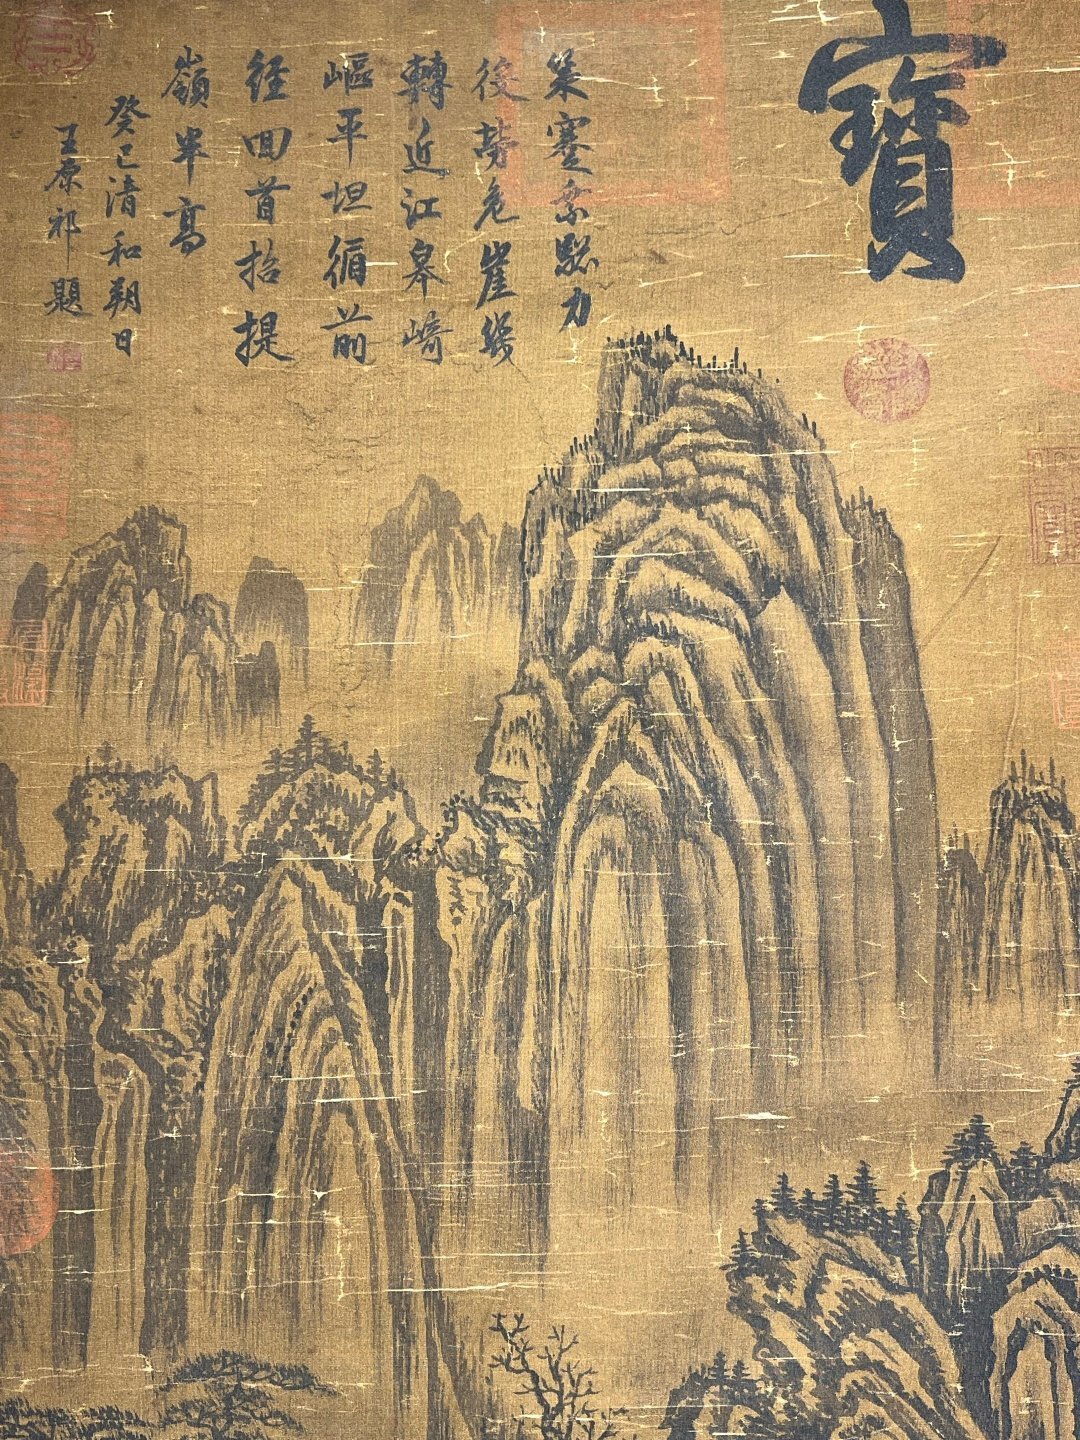 寶
策蹇力
危崖幾
轉近江皋崎
嶇平坦循前
徑回首招提
嶺半高
癸巳清和朔日
王原祁題